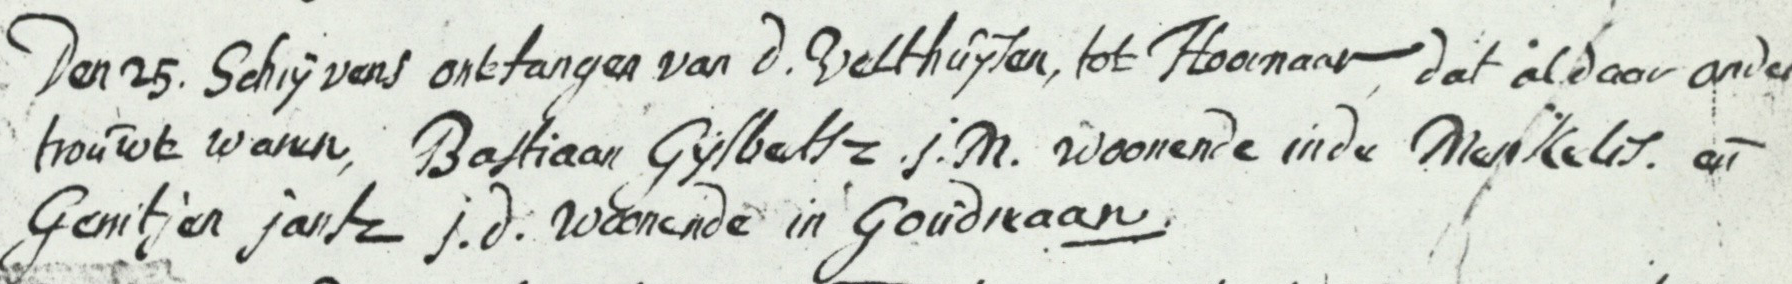 Den 25. Schrÿvens ontfangen van d. Velthuÿsen, tot Hoornaar dat aldaar onder
trouwt waren, Bastiaan Gÿsbertsz j.M. woonende inde Merkelis. en
Gerritjen jansz j.d. woonende in Goudriaan.